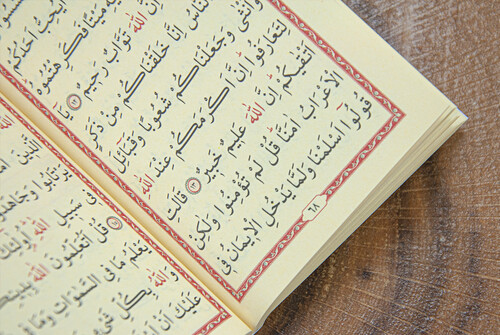 ايحب احدكم
ميتا فكرهتموه
ان الله تواب رحيم ﴿١٢﴾ يا
الناس انا خلقناكم من ذكر
وَاُنْثٰى وَجَعَلْنَاكُمْ شُعُوبًا وَقَبَائِلَ
لِتَعَارَفُوا اِنَّ اَكْرَمَكُمْ عِنْدَ اللّٰهِ
اَتْقٰيكُمْ اِنَّ اللّٰهَ عَلِيمٌ خَبِيرٌ ﴿١٣﴾ قَالَتِ
الْاَعْرَابُ اٰمَنَّا قُلْ لَمْ تُؤْمِنُوا وَلٰكِنْ
قُولُوا اَسْلَمْنَا وَلَمَّا يَدْخُلِ الْاِيمَانُ فِي
٦٨
الَّذِينَ
يَرْتَابُوا وَجَاهَدُوا
فِي سَبِيلِ اللّٰهِ اُولٰئِكَ
قُلْ اَتُعَلِّمُونَ اللّٰهَ
يَعْلَمُ مَا فِي السَّمٰوَاتِ وَمَا
وَاللّٰهُ بِكُلِّ شَيْءٍ
عَلَيْكَ اَنْ